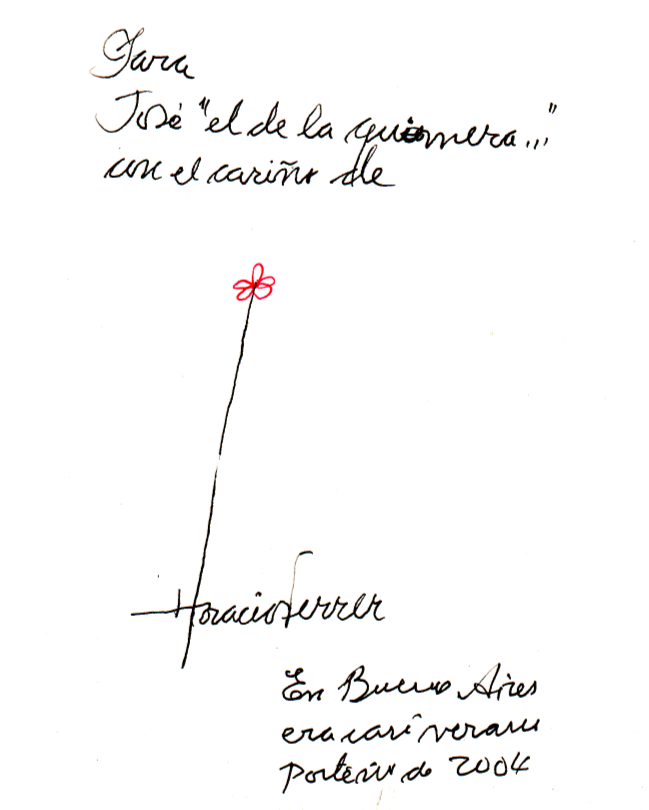 Para
José "el de la quimera..."
con el cariño de
Horacio Ferrer
En Buenos Aires
era casi verano
porteño de 2004